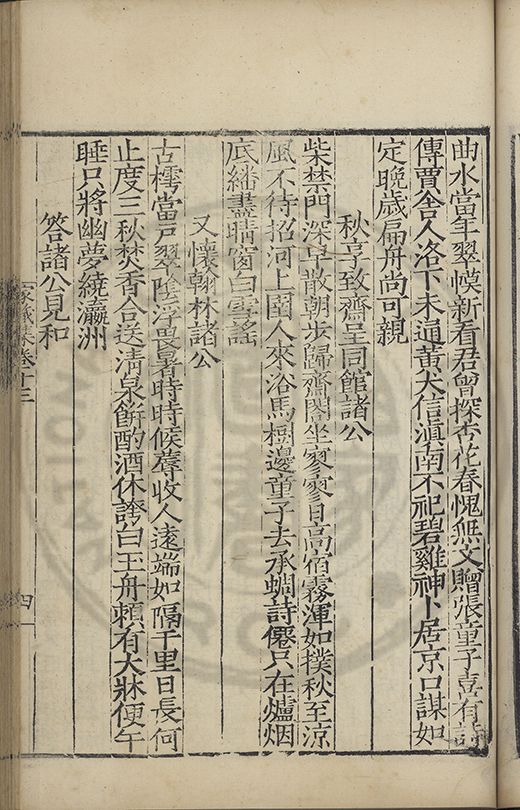 曲水當年翠幙新看君曾探杏花春愧無文贈張童子喜有詩
傳賈舍人洛下未通黃犬信滇南不祀碧雞神卜居京口謀如
定晚歲扁舟尚可親
秋享致齋呈同館諸公
柴禁門深早散朝步歸齋閣坐寥寥日高宿霧渾如撲秋至涼
風不待招河上圉人來浴馬樹邊童子去承蜩詩僊只在爐烟
底繙盡晴窗白雪謠
又懷翰林諸公
古樗當戶翠陰浮畏暑時時候蓐收人遠端如隔千里日長何
止度三秋焚香合送清泉餅酌酒休誇白玉舟賴有大牀便午
睡只將幽夢繞瀛洲
荅諸公見和
家藏集卷十三
四